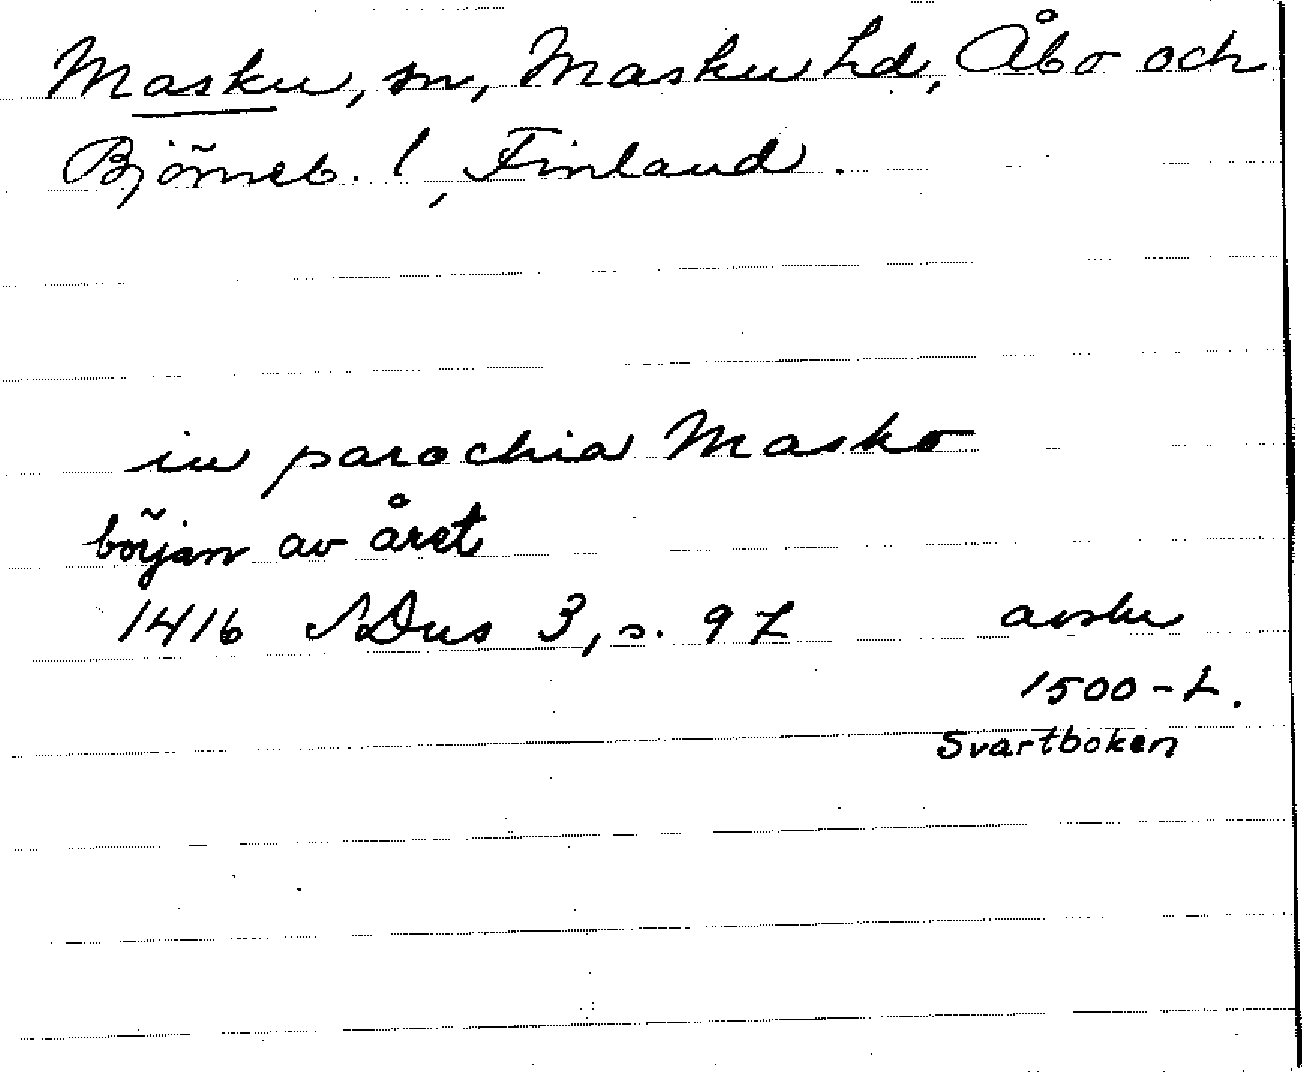 Masku, sn, Masku hd, Åbo och
Björneb. l, Finland.
in parochia Masko
början av året
1416 SDns 3, s. 97 avskr
1500-t.
Svartboken